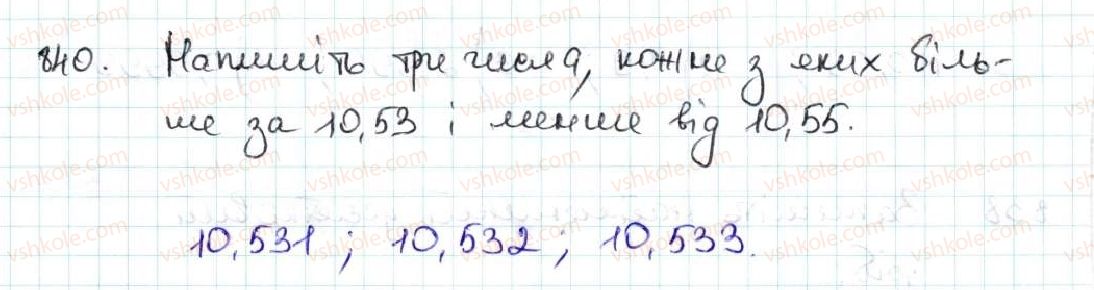 840. Напишіть три числа, кожне з яких біль-
ше за 10,53 і менше від 10,55.
10,531 ; 10,532 ; 10,533.